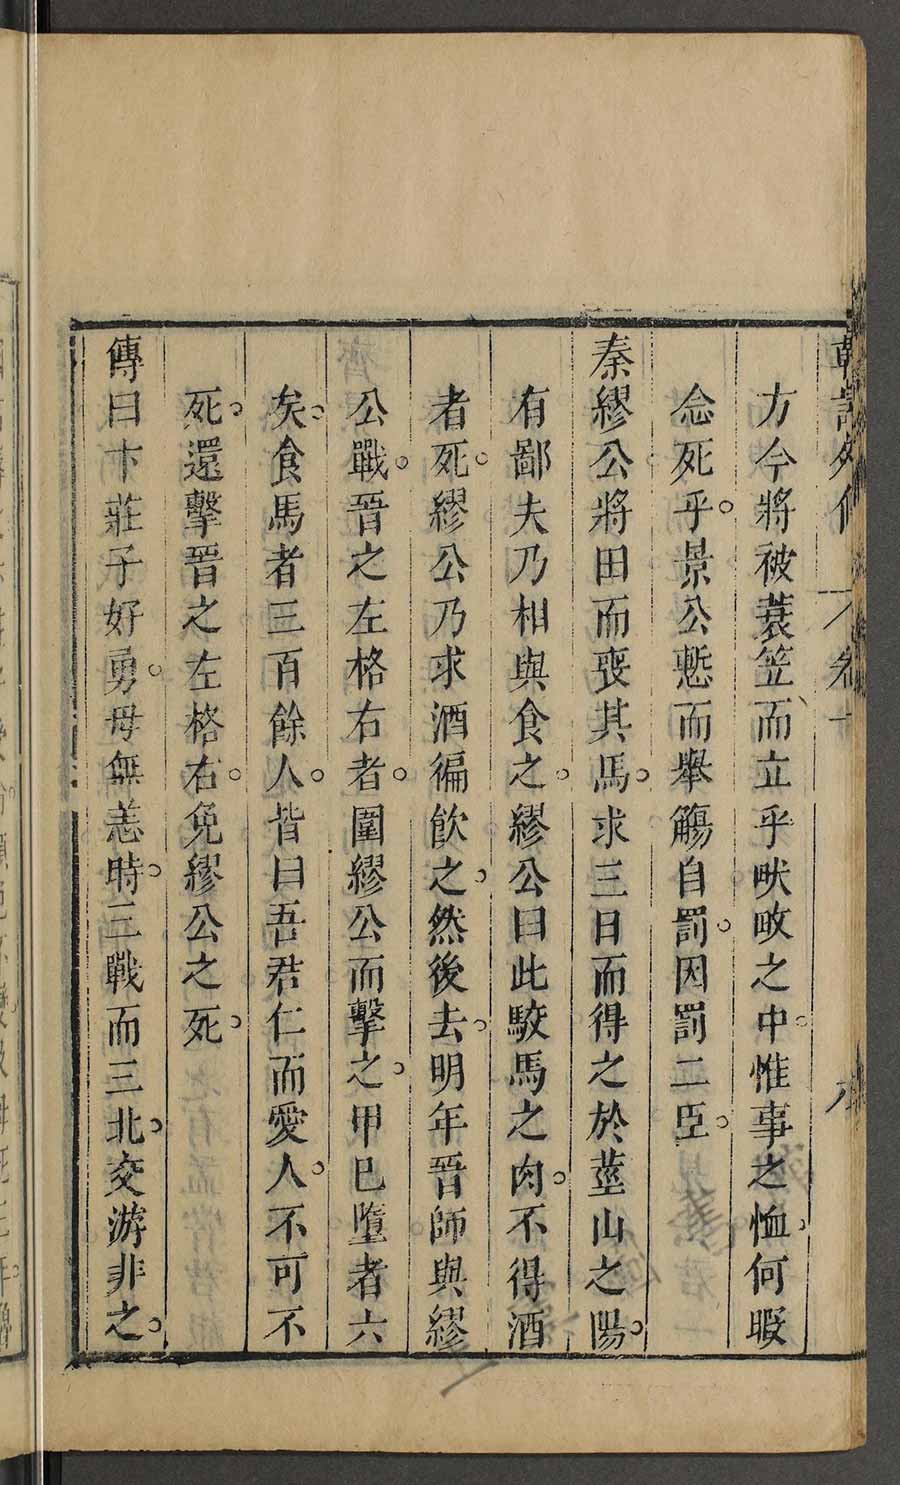 韓詩外傳 卷十
方今將被蓑笠而立乎畎畝之中惟事之恤何暇
念死乎景公慙而舉觴自罰因罰二臣
秦繆公將田而喪其馬求三日而得之於莖山之陽
有鄙夫乃相與食之繆公曰此駮馬之肉不得酒
者死繆公乃求酒徧飲之然後去明年晉師與繆
公戰晉之左格右者圍繆公而擊之甲已墮者六
矣食馬者三百餘人皆曰吾君仁而愛人不可不
死還擊晉之左格右免繆公之死
傳曰卞莊子好勇母無恙時三戰而三北交游非之